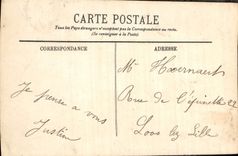 CARTE POSTALE
Tous les Pays étrangers n'acceptent pas la Correspondance au recto.
(Se renseigner à la Poste)
CORRESPONDANCE
ADRESSE
Mr Haernaert
Rue de l'Epinette 22
Loos lez Lille
Je pense a vous
Justin